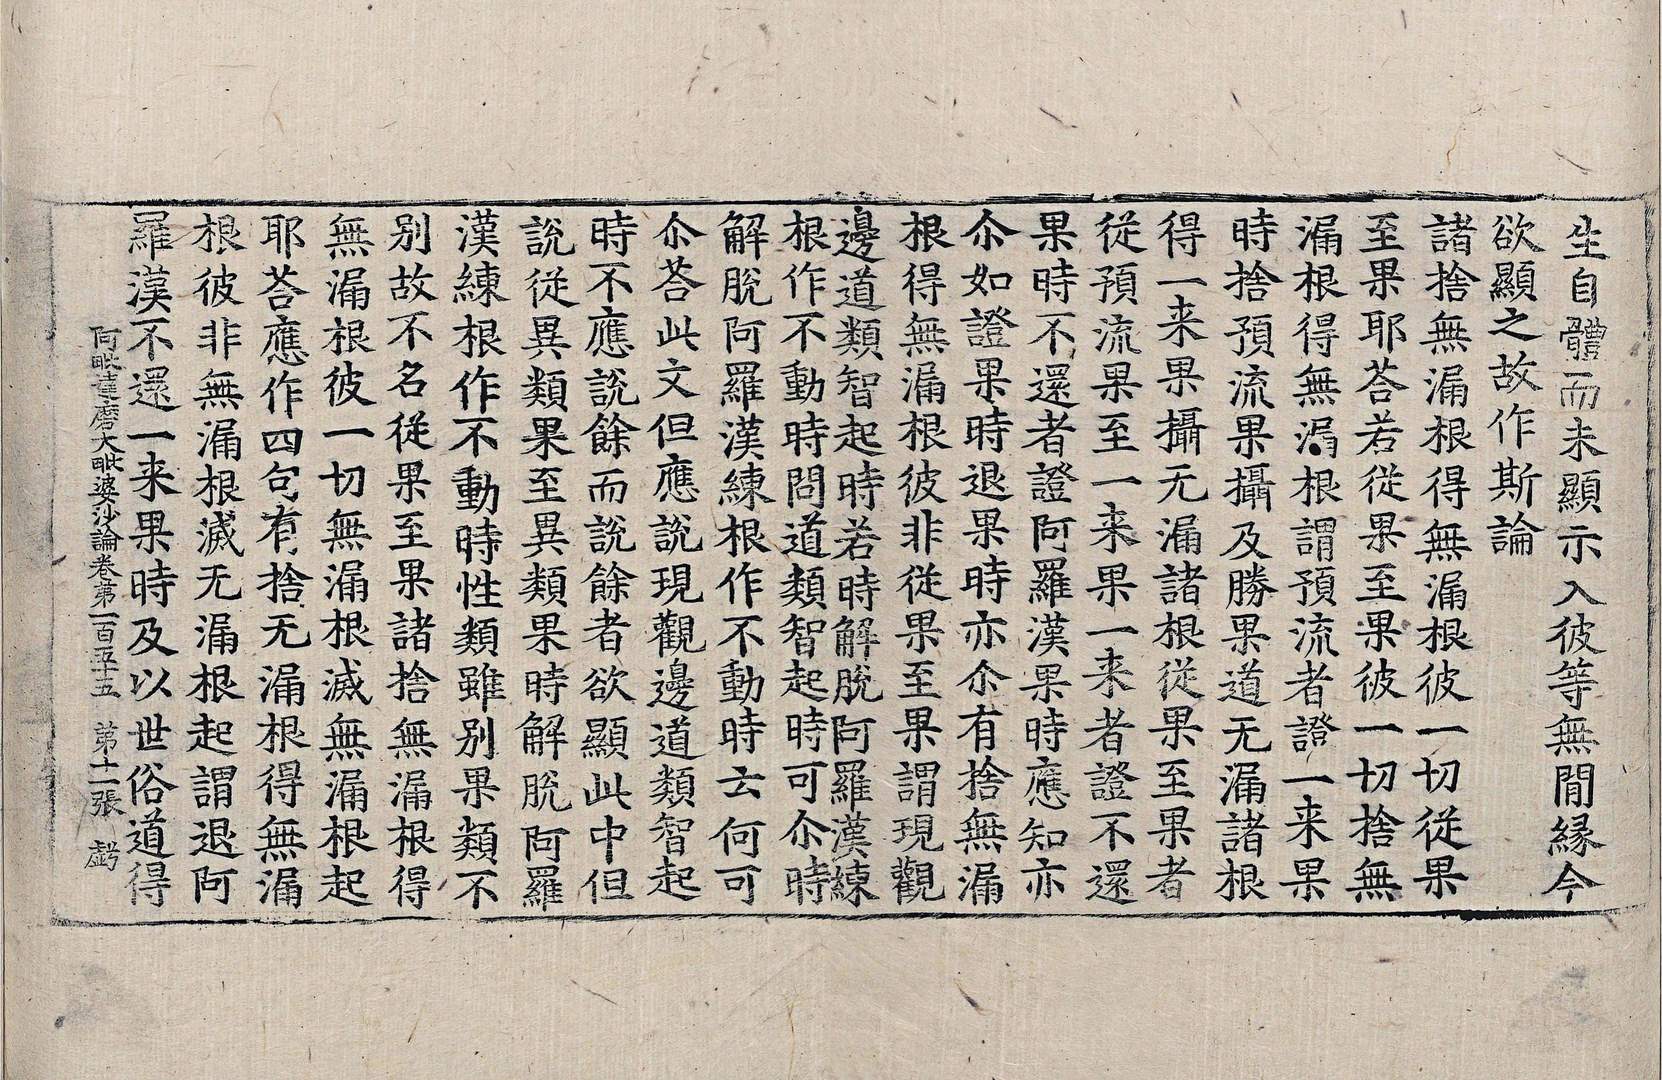 生自體而未顯示入彼等無間縁今
欲顯之故作斯論
諸捨無漏根得無漏根彼一切從果
至果耶荅若從果至果彼一切捨無
漏根得無漏根謂預流者證一来果
時捨預流果攝及勝果道无漏諸根
得一来果攝无漏諸根從果至果者
從預流果至一来果一来者證不還
果時不還者證阿羅漢果時應知亦
尒如證果時退果時亦尒有捨無漏
根得無漏根彼非從果至果謂現觀
邊道類智起時若時解脫阿羅漢練
根作不動時問道類智起時可尒時
解脫阿羅漢練根作不動時云何可
尒荅此文但應說現觀邊道類智起
時不應說餘而說餘者欲顯此中但
說從異類果至異類果時解脫阿羅
漢練根作不動時性類雖別果類不
別故不名從果至果諸捨無漏根得
無漏根彼一切無漏根滅無漏根起
耶荅應作四句有捨无漏根得無漏
根彼非無漏根滅无漏根起謂退阿
羅漢不還一来果時及以世俗道得
阿毗達磨大毗婆沙論卷第一百五十五 第十二張 虧